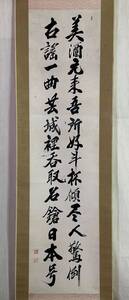 美酒元来吾所好斗杯傾尽人驚倒
古謡一曲芸城裡呑取名鎗日本号